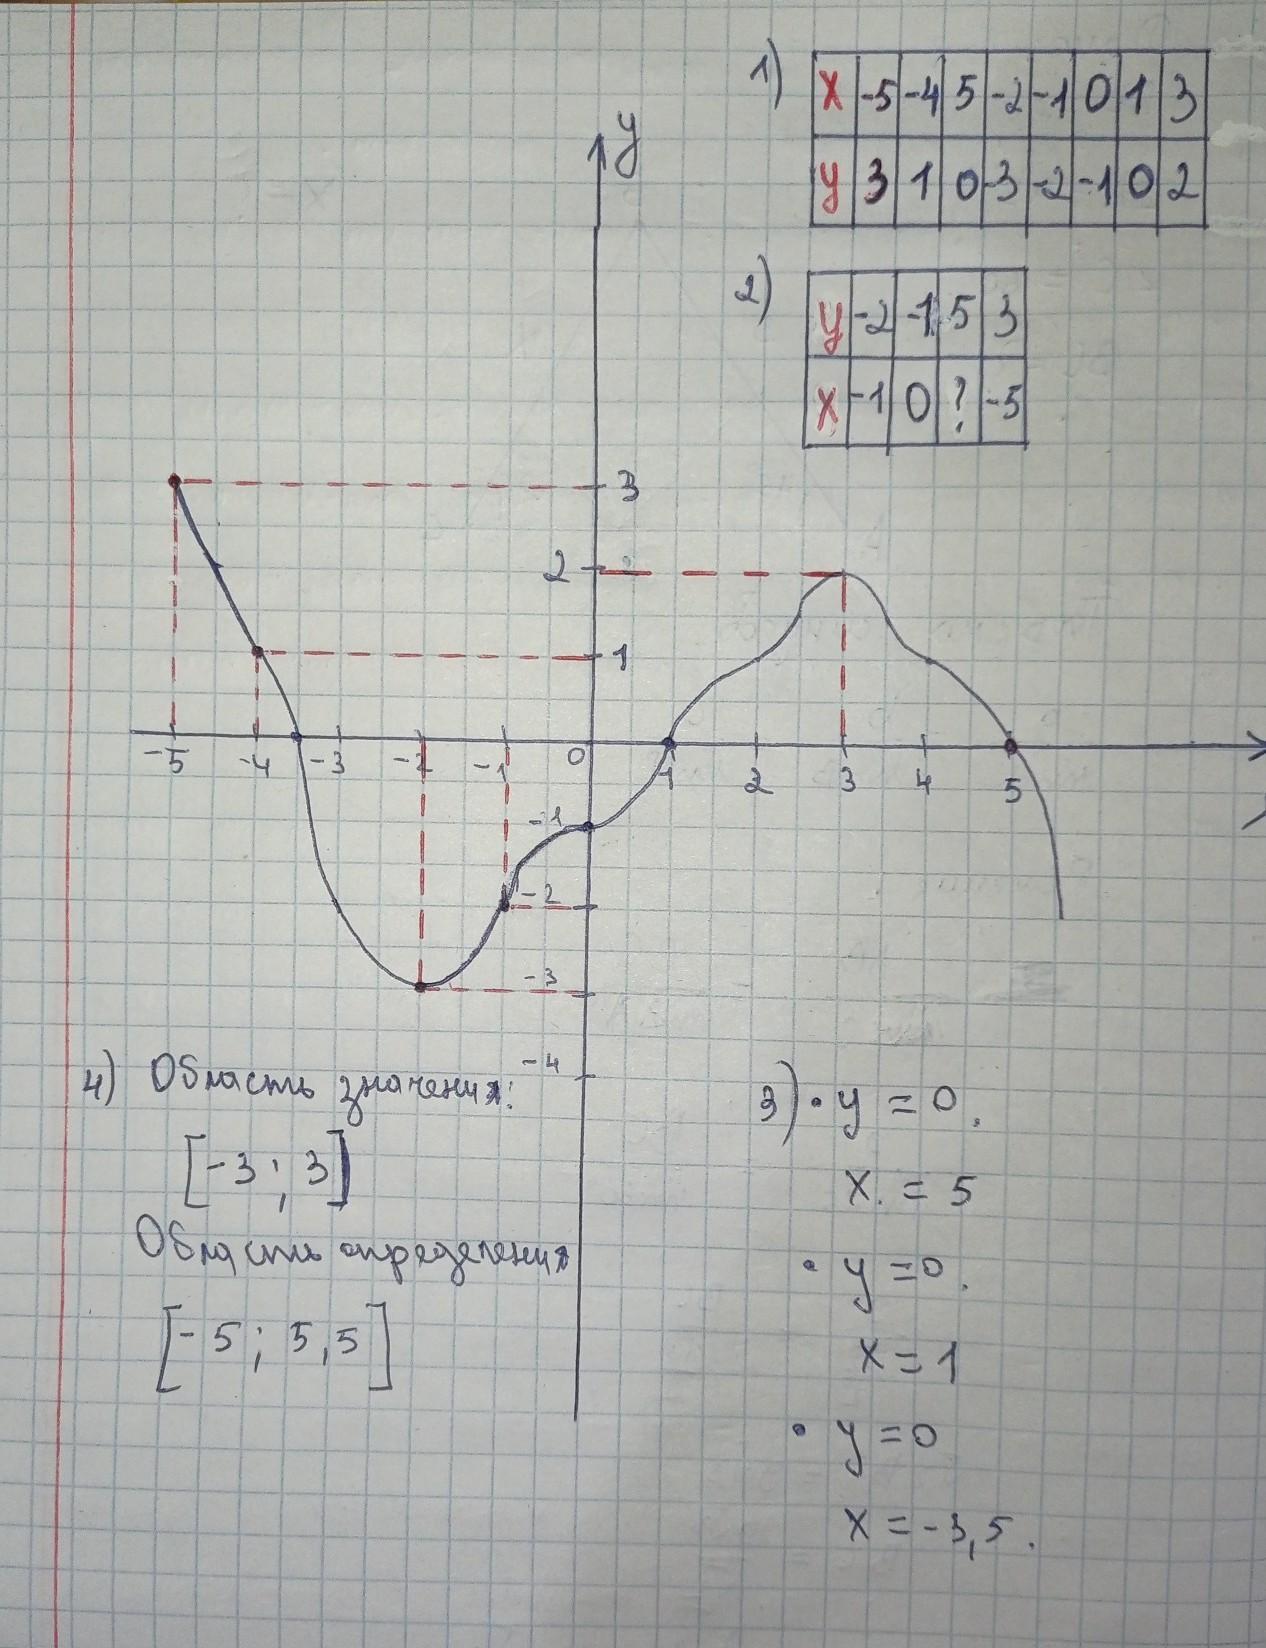 1)
x -5 -4 5 -2 -1 0 1 3
y 3 1 0 -3 -2 -1 0 2
y
2)
y -2 -1 5 3
x -1 0 ? -5
3
2
1
-5 -4 -3 -2 -1 0 1 2 3 4 5
-1
-2
-3
-4
4) Область значения:
[-3; 3]
Область определения
[-5; 5,5]
3) • y = 0.
x. = 5
• y = 0.
x = 1
• y = 0
x = -3,5.